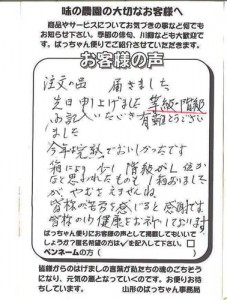 味の農園の大切なお客様へ
商品やサービスについてお気づきの事など何でも
お知らせ下さい。季節の俳句、川柳なども大歓迎で
す。ばっちゃん便りでご紹介させていただきます。
お客様の声
注文の品 届きました
先日申し上げました 等級・階級
御記入いただき有難とうござい
ました
今年は完熟でおいしかったです
箱により 階級がL位か
なと思われたものも1箱ありました
が、やむをえませんね
皆様の苦労を感じると感謝です
皆様のご健康をお祈りしております
ばっちゃん便りにお客様の声として掲載してもいいで
しょうか?匿名希望の方は✓を記入して下さい。
ペンネームの方( )
皆様からのはげましの言葉が私たちの魂のごちそう
になり、元気の源となっていくのです。お便りお待
ちしています。 山形のばっちゃん事務局